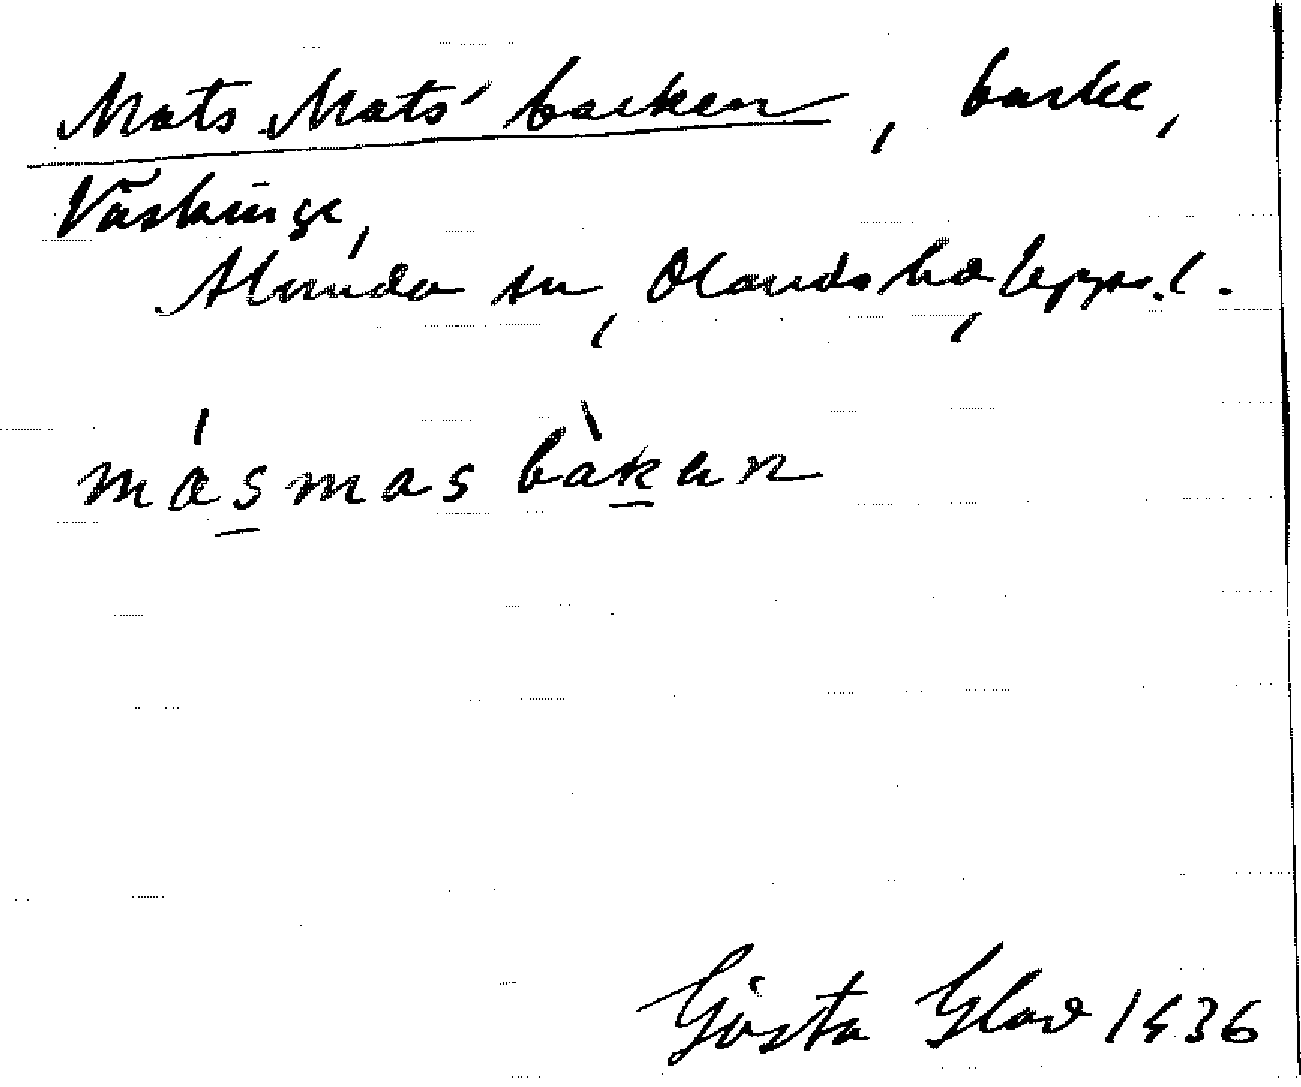 Mats Mats' backen, backe,
Väskinge,
Alunda sn, Olands hd, Upps. l.
másmas bàkan
Gösta Glad 1936